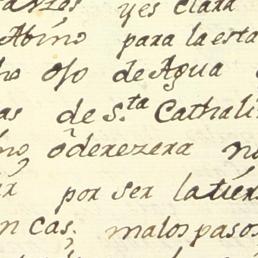 yes clara
Abino para la esta
ho ojo de Agua
as de S.ta Cathali
no, õ derezera no
por ser la tier
n cas. malos pasos